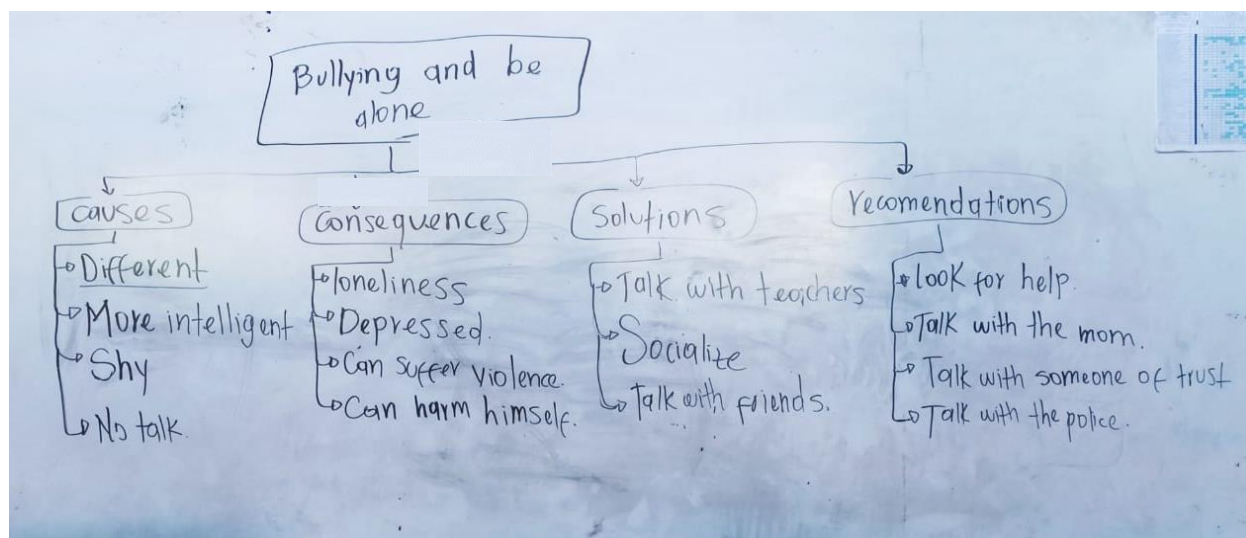 Bullying and be
alone
causes
Different
More intelligent
Shy
No talk
Consequences
loneliness
Depressed.
Can suffer violence.
Can harm himself.
Solutions
Talk with teachers
Socialize
Talk with friends.
recomendations
look for help.
Talk with the mom.
Talk with someone of trust
Talk with the police.